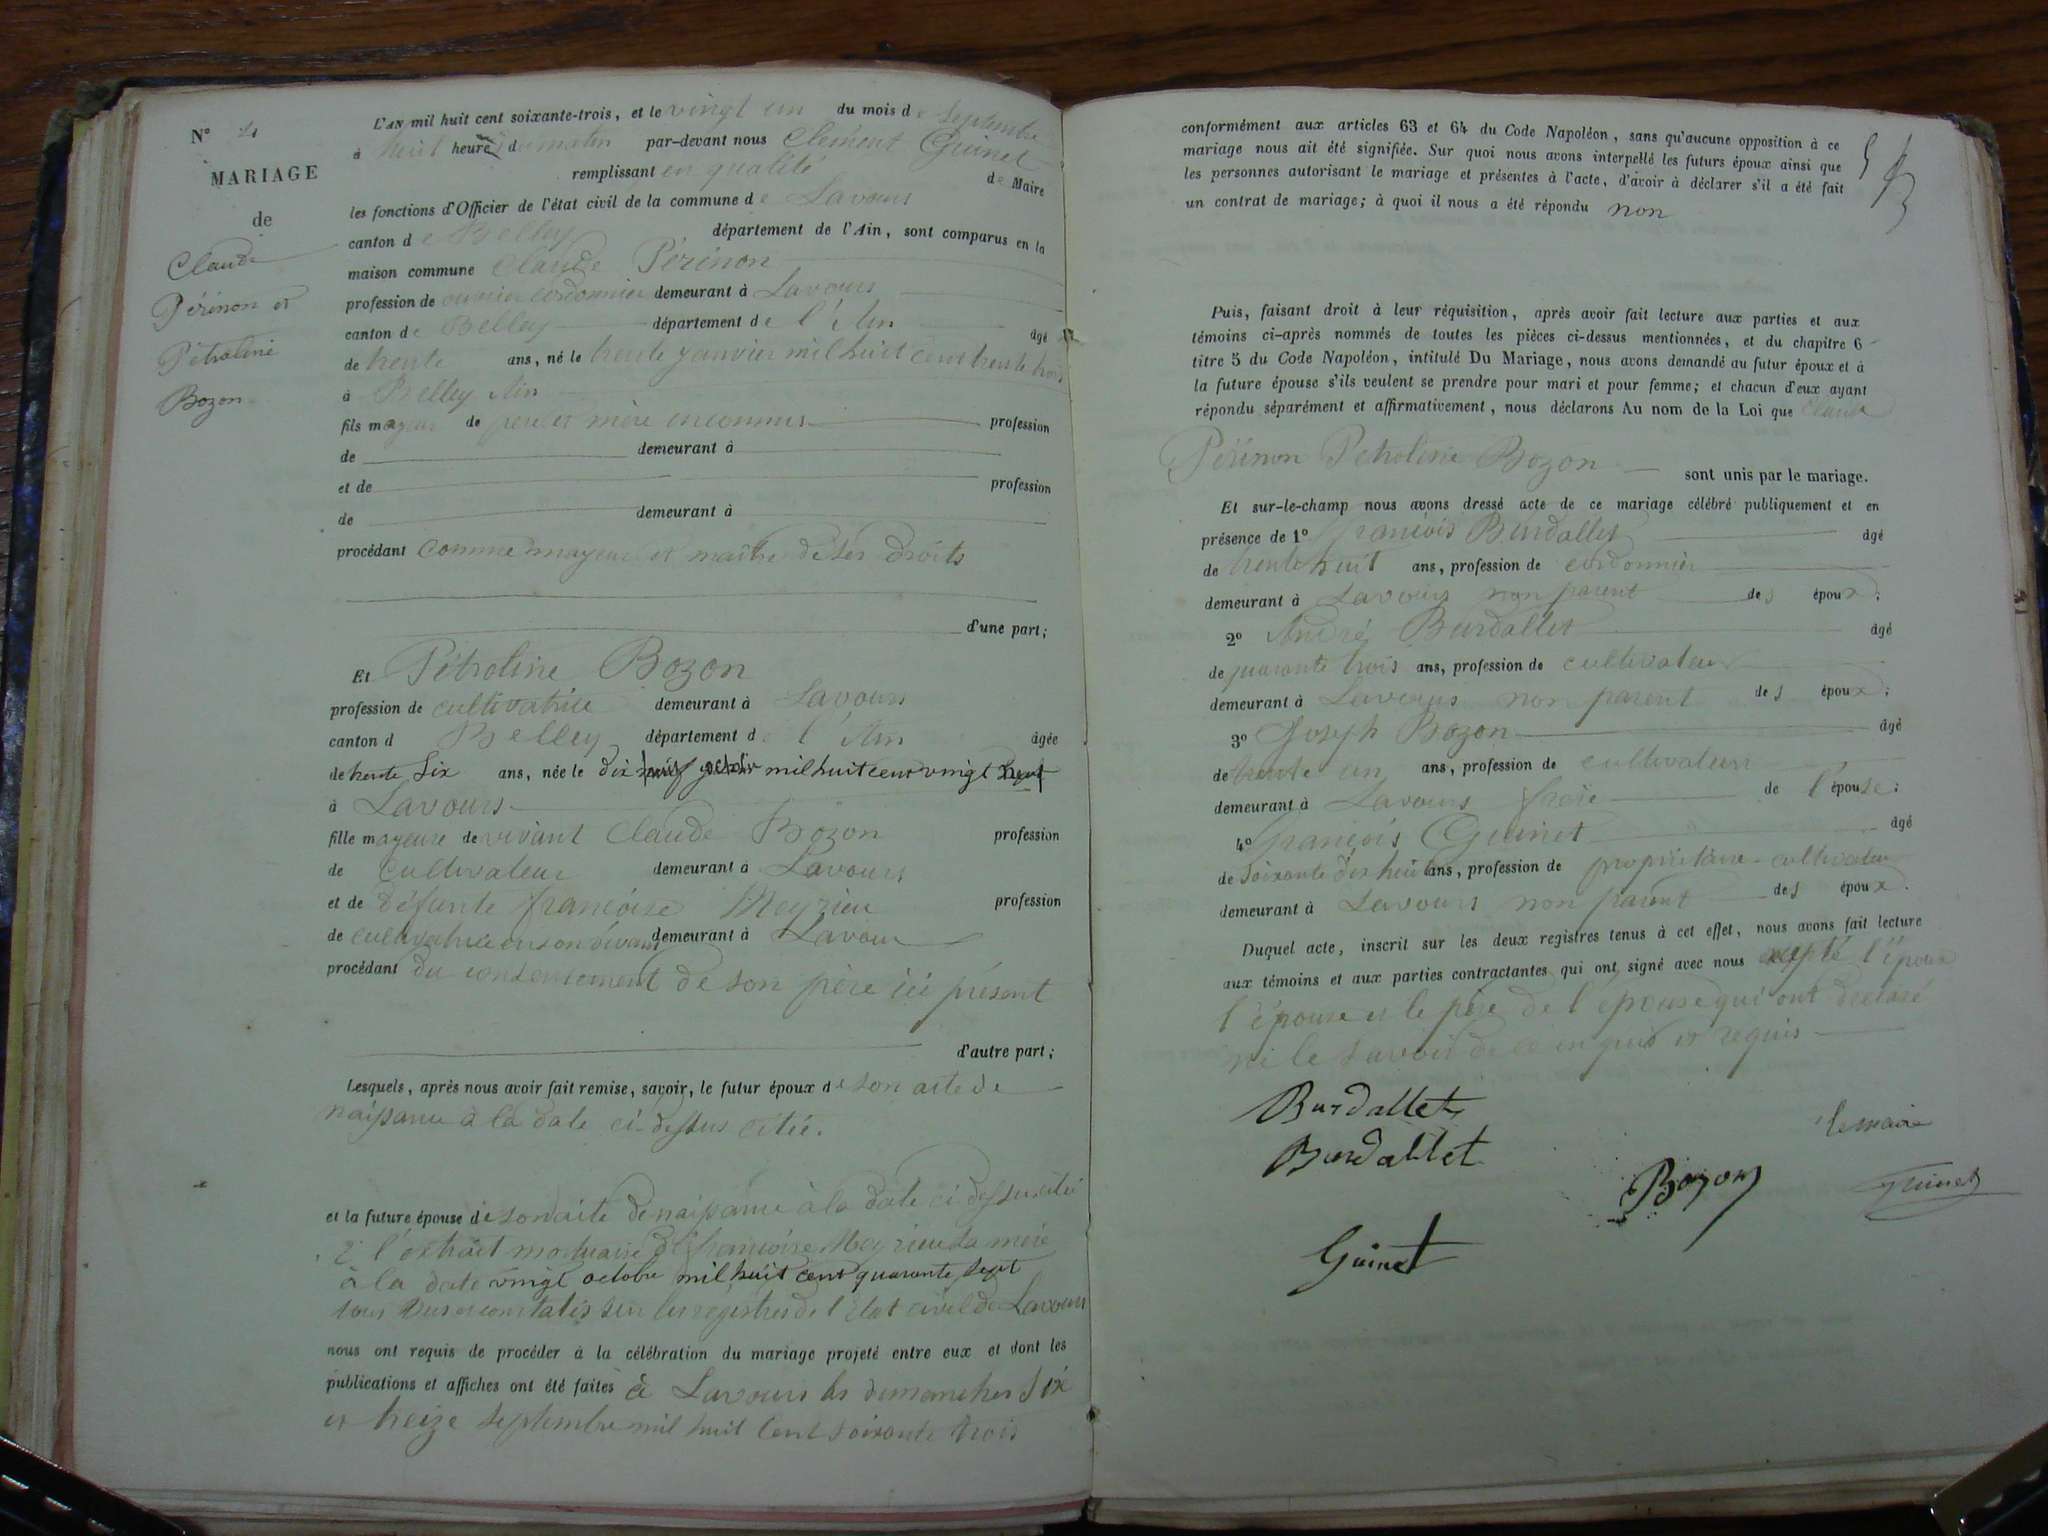 L'AN mil huit cent soixante-trois, et le vingt un du mois de Septembre
à huit heures du matin par-devant nous Clément Guinet
N°
MARIAGE
de
Claude
Périnon et
Pétroline
Bozon
remplissant en qualité de Maire
les fonctions d'Officier de l'état civil de la commune de Lavours
canton de Belley département de l'Ain, sont comparus en la
maison commune Claude Périnon
profession de ouvrier cordonnier demeurant à Lavours
canton de Belley département de l'Ain âgé
de trente ans, né le trente janvier mil huit cent trente trois
à Belley Ain
fils mayeur de père et mère inconnus profession
de demeurant à
et de profession
de demeurant à
procédant comme mayeur et maître de ses droits
d'une part;
Et Pétroline Bozon
profession de cultivatrice demeurant à Lavours
canton d Belley département de l'Ain âgée
de trente six ans, née le dix mil huit cent vingt
à Lavours
fille mayeure de vivant Claude Bozon profession
de cultivateur demeurant à Lavours
et de défunte françoise Meyrieu profession
de cultivatrice en son vivant demeurant à Lavours
procédant du consentement de son père ici présent
d'autre part;
Lesquels, après nous avoir fait remise, savoir, le futur époux de son acte de
naissance à la date ci-dessus citée.
et la future épouse de son acte de naissance à la date ci dessus citée
2° l'extrait mortuaire de françoise Meyrieu sa mère
à la date vingt octobre mil huit cent quarante sept
tous deux constatés sur les registres de l'état civil de Lavours
nous ont requis de procéder à la célébration du mariage projeté entre eux et dont les
publications et affiches ont été faites à Lavours les dimanches six
et treize septembre mil huit cent soixante trois
conformément aux articles 63 et 64 du Code Napoléon, sans qu'aucune opposition à ce
mariage nous ait été signifiée. Sur quoi nous avons interpellé les futurs époux ainsi que
les personnes autorisant le mariage et présentes à l'acte, d'avoir à déclarer s'il a été fait
un contrat de mariage; à quoi il nous a été répondu non
Puis, faisant droit à leur réquisition, après avoir fait lecture aux parties et aux
témoins ci-après nommés de toutes les pièces ci-dessus mentionnées, et du chapitre 6
titre 5 du Code Napoléon, intitulé Du Mariage, nous avons demandé au futur époux et à
la future épouse s'ils veulent se prendre pour mari et pour femme; et chacun d'eux ayant
répondu séparément et affirmativement, nous déclarons Au nom de la Loi que Claude
Périnon Pétroline Bozon sont unis par le mariage.
Et sur-le-champ nous avons dressé acte de ce mariage célébré publiquement et en
présence de 1° François Burdallet âgé
de trente huit ans, profession de cordonnier
demeurant à Lavours non parent des époux;
2° André Burdallet âgé
de quarante trois ans, profession de cultivateur
demeurant à Lavours non parent des époux;
3° Joseph Bozon âgé
de trente un ans, profession de cultivateur
demeurant à Lavours frère de l'épouse;
4° François Guinet âgé
de soixante dix huit ans, profession de propriétaire-cultivateur
demeurant à Lavours non parent des époux.
Duquel acte, inscrit sur les deux registres tenus à cet effet, nous avons fait lecture
aux témoins et aux parties contractantes qui ont signé avec nous excepté l'époux
l'épouse et le père de l'épouse qui ont déclaré
ne le savoir de ce enquis et requis
Burdallet
Burdallet
le maire
Bozon
Guinet
Guinet